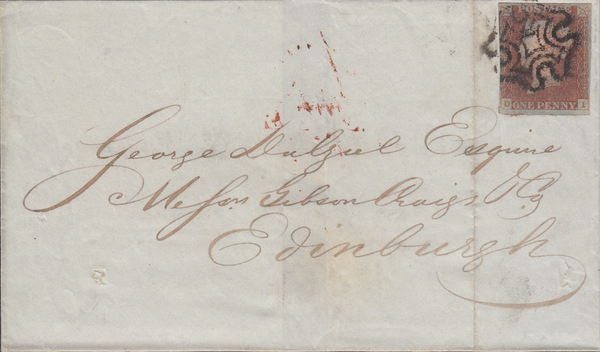 POSTAGE
D ONE PENNY I
George Dalziel Esquire
Messrs Gibson Craigs & Co
Edinburgh